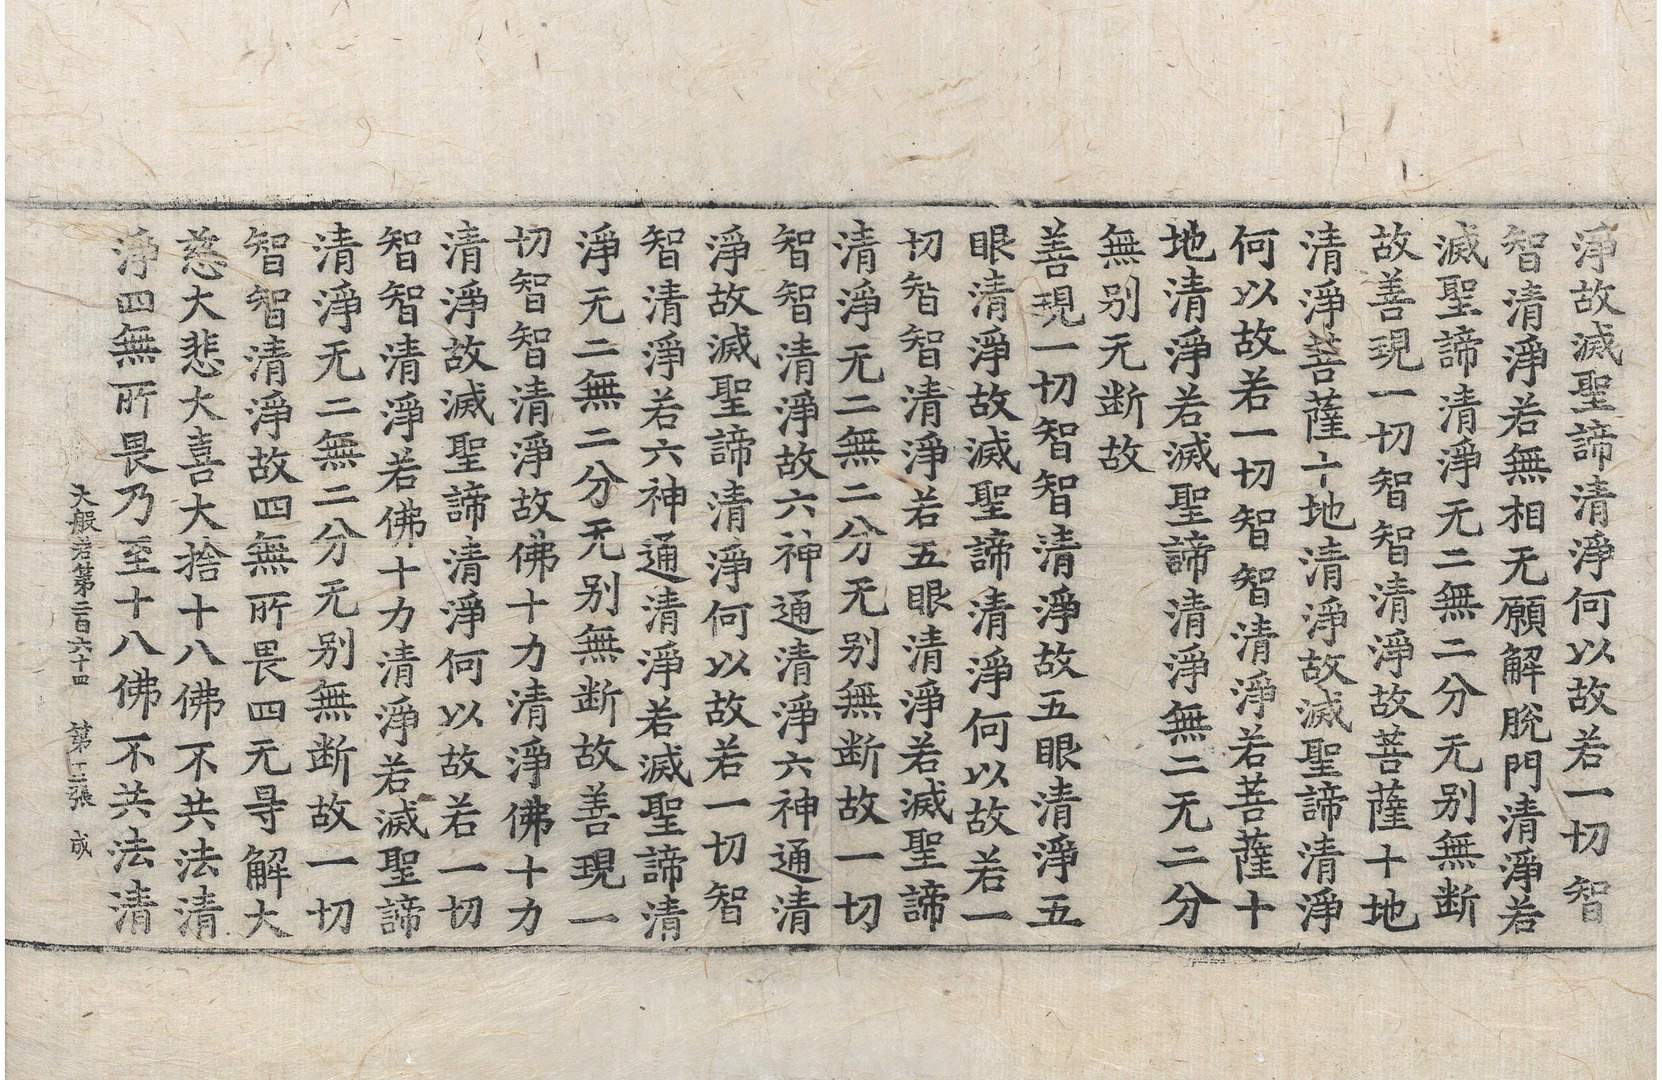 淨故滅聖諦清淨何以故若一切智
智清淨若無相无願解脫門清淨若
滅聖諦清淨无二無二分无别無断
故善現一切智智清淨故菩薩十地
清淨菩薩十地清淨故滅聖諦清淨
何以故若一切智智清淨若菩薩十
地清淨若滅聖諦清淨無二无二分
無别无断故
善現一切智智清淨故五眼清淨五
眼清淨故滅聖諦清淨何以故若一
切智智清淨若五眼清淨若滅聖諦
清淨无二無二分无别無断故一切
智智清淨故六神通清淨六神通清
淨故滅聖諦清淨何以故若一切智
智清淨若六神通清淨若滅聖諦清
淨无二無二分无别無断故善現一
切智智清淨故佛十力清淨佛十力
清淨故滅聖諦清淨何以故若一切
智智清淨若佛十力清淨若滅聖諦
清淨无二無二分无别無断故一切
智智清淨故四無所畏四无㝵解大
慈大悲大喜大捨十八佛不共法清
淨四無所畏乃至十八佛不共法清
大般若第二百六十四 第十二張 成